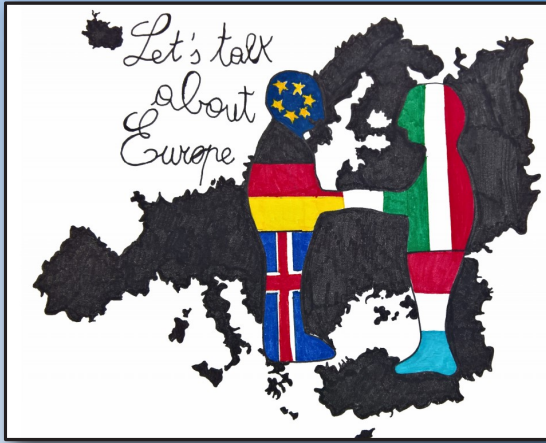 Let's talk
about
Europe